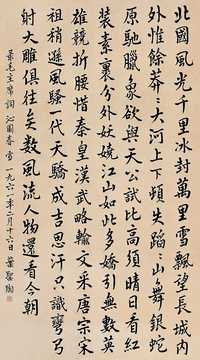 北國風光千里冰封萬里雪飄望長城內
外惟餘莽〻大河上下頓失滔〻山舞銀蛇
原馳臘象欲與天公試比高須晴日看紅
裝素裹分外妖嬈江山如此多嬌引無數英
雄競折腰惜秦皇漢武略輸文采唐宗宋
祖稍遜風騷一代天驕成吉思汗只識彎弓
射大雕俱往矣數風流人物還看今朝
毛主席詞 沁園春 雪 一九六一年二月十六日 葉聖陶